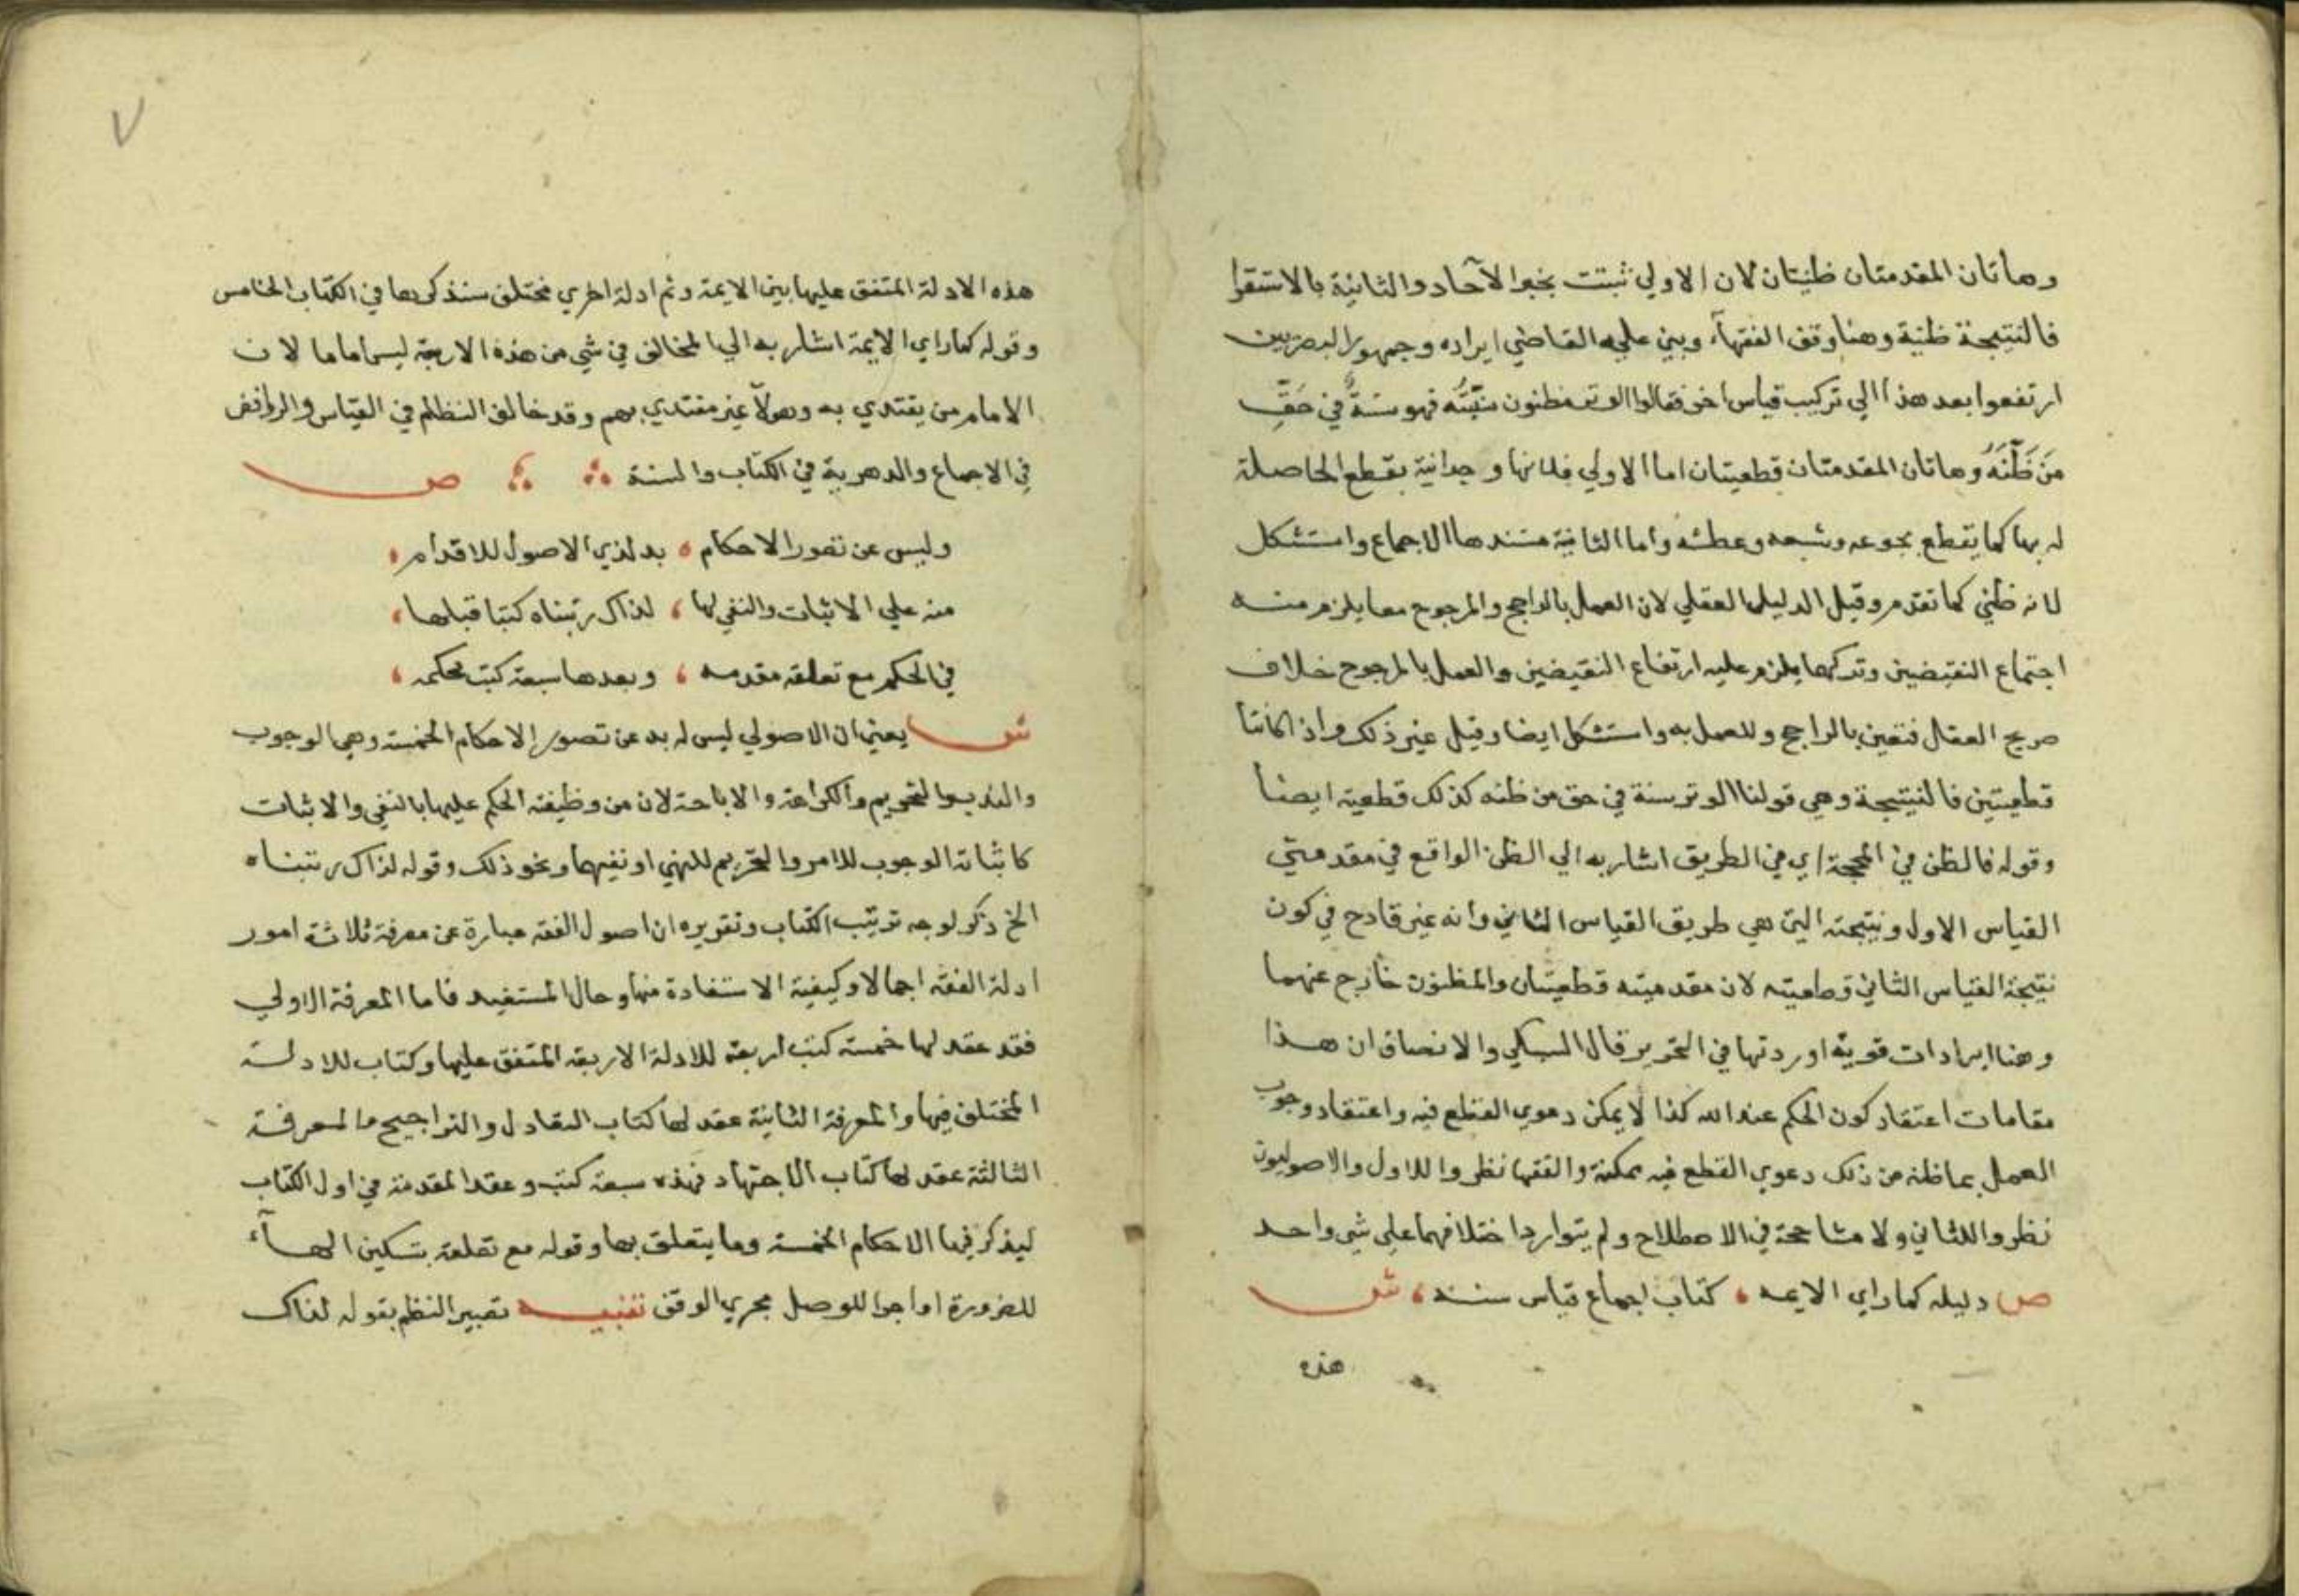 وهاتان المقدمتان ظنيتان لان الاولي ثبتت بخبر الآحاد والثانية بالاستقرا
فالنتيجة ظنية وهنا وقف الفقهآء وبني عليه القاضي ايراده وجمهور البصريين
ارتفعوا بعد هذا الي تركيب قياس اخر فقالوا الوتر مظنون سنيته فهو سنةٌ في حَقِّ
مَن ظَنَّهُ وهاتان المقدمتان قطعيتان اما الاولي فلانها وجدانية يقطع الحاصلة
له بها كما يقطع بجوعه وشبعه وعطشه واما الثانية مستندها الاجماع واستشكل
لانه ظني كما تقدم وقيل الدليل العقلي لان العمل بالراجح والمرجوح معا يلزم منه
اجتماع النقيضين وتركهما يلزم عليه ارتفاع النقيضين والعمل بالمرجوح خلاف
صريح العقل فتعين بالراجح وللعمل به واستشكل ايضا وقيل غير ذلك واذا كانتا
قطعيتين فالنتيجة وهي قولنا الوتر سنة في حق من ظنه كذلك قطعية ايضا
وقوله فالظن في المحجة اي في الطريق اشار به الي الظن الواقع في مقدمتي
القياس الاول ونتيجته التي هي طريق القياس الثاني وانه غير قادح في كون
نتيجة القياس الثاني قطعيته لان مقدميته قطعيتان والمظنون خارج عنهما
وهنا ايرادات قوية اوردتها في التحرير قال السبكي والانصاف ان هذا
مقامات اعتقاد كون الحكم عند الله كذا لا يمكن دعوي القطع فيه واعتقاد وجوب
العمل بما ظنه من ذلك دعوي القطع فيه ممكنة والفقها نظروا للاول والاصوليون
نظروا للثاني ولا مشاححة في الاصطلاح ولم يتوارد اختلافهما على شي واحد
ص دليله كما راي الايمه ، كتاب اجماع قياس سنه ، ش
هذه
هذه الادلة المتفق عليها بين الايمة وثم ادلة اخري مختلف سنذكرها في الكتاب الخامس
وقوله كما راي الايمة اشار به الي المخالف في شي من هذه الاربعة ليس اماما لان
الامام من يقتدي به وهولآ غير مقتدي بهم وقد خالف النظام في القياس والروافض
في الاجماع والدهرية في الكتاب والسنة ص
وليس عن تصور الاحكام ، بد لذي الاصول للاقدام ،
منه علي الاثبات والنفي لها ، لذاك رتبناه كتبا قبلها ،
في الحكم مع تعلقه مقدمه ، وبعدها سبعة كتب محكمه ،
ش يعني ان الاصولي ليس له بد عن تصور الاحكام الخمسة وهي الوجوب
والندب والتحريم والكراهة والاباحة لان من وظيفته الحكم عليها بالنفي والاثبات
كاثباته الوجوب للامر والتحريم للنهي او نفيهما ونحو ذلك وقوله لذاك رتبناه
الخ ذكر لوجه ترتيب الكتاب وتقريره ان اصول الفقه عبارة عن معرفة ثلاثة امور
ادلة الفقه اجمالا وكيفية الاستفادة منها وحال المستفيد فاما المعرفة الاولي
فقد عقد لها خمسة كتب اربعة للادلة الاربعة المتفق عليها وكتاب للادلة
المختلف فيها والمعرفة الثانية عقد لها كتاب التعادل والتراجيح والمعرفة
الثالثة عقد لها كتاب الاجتهاد فهذه سبعة كتب وعقد المقدمة في اول الكتاب
ليذكر فيها الاحكام الخمسة وما يتعلق بها وقوله مع تعلقه بتسكين الهآء
للضرورة او اجرا للوصل مجري الوقف تنبيه تعبير النظم بقوله لذاك
٧